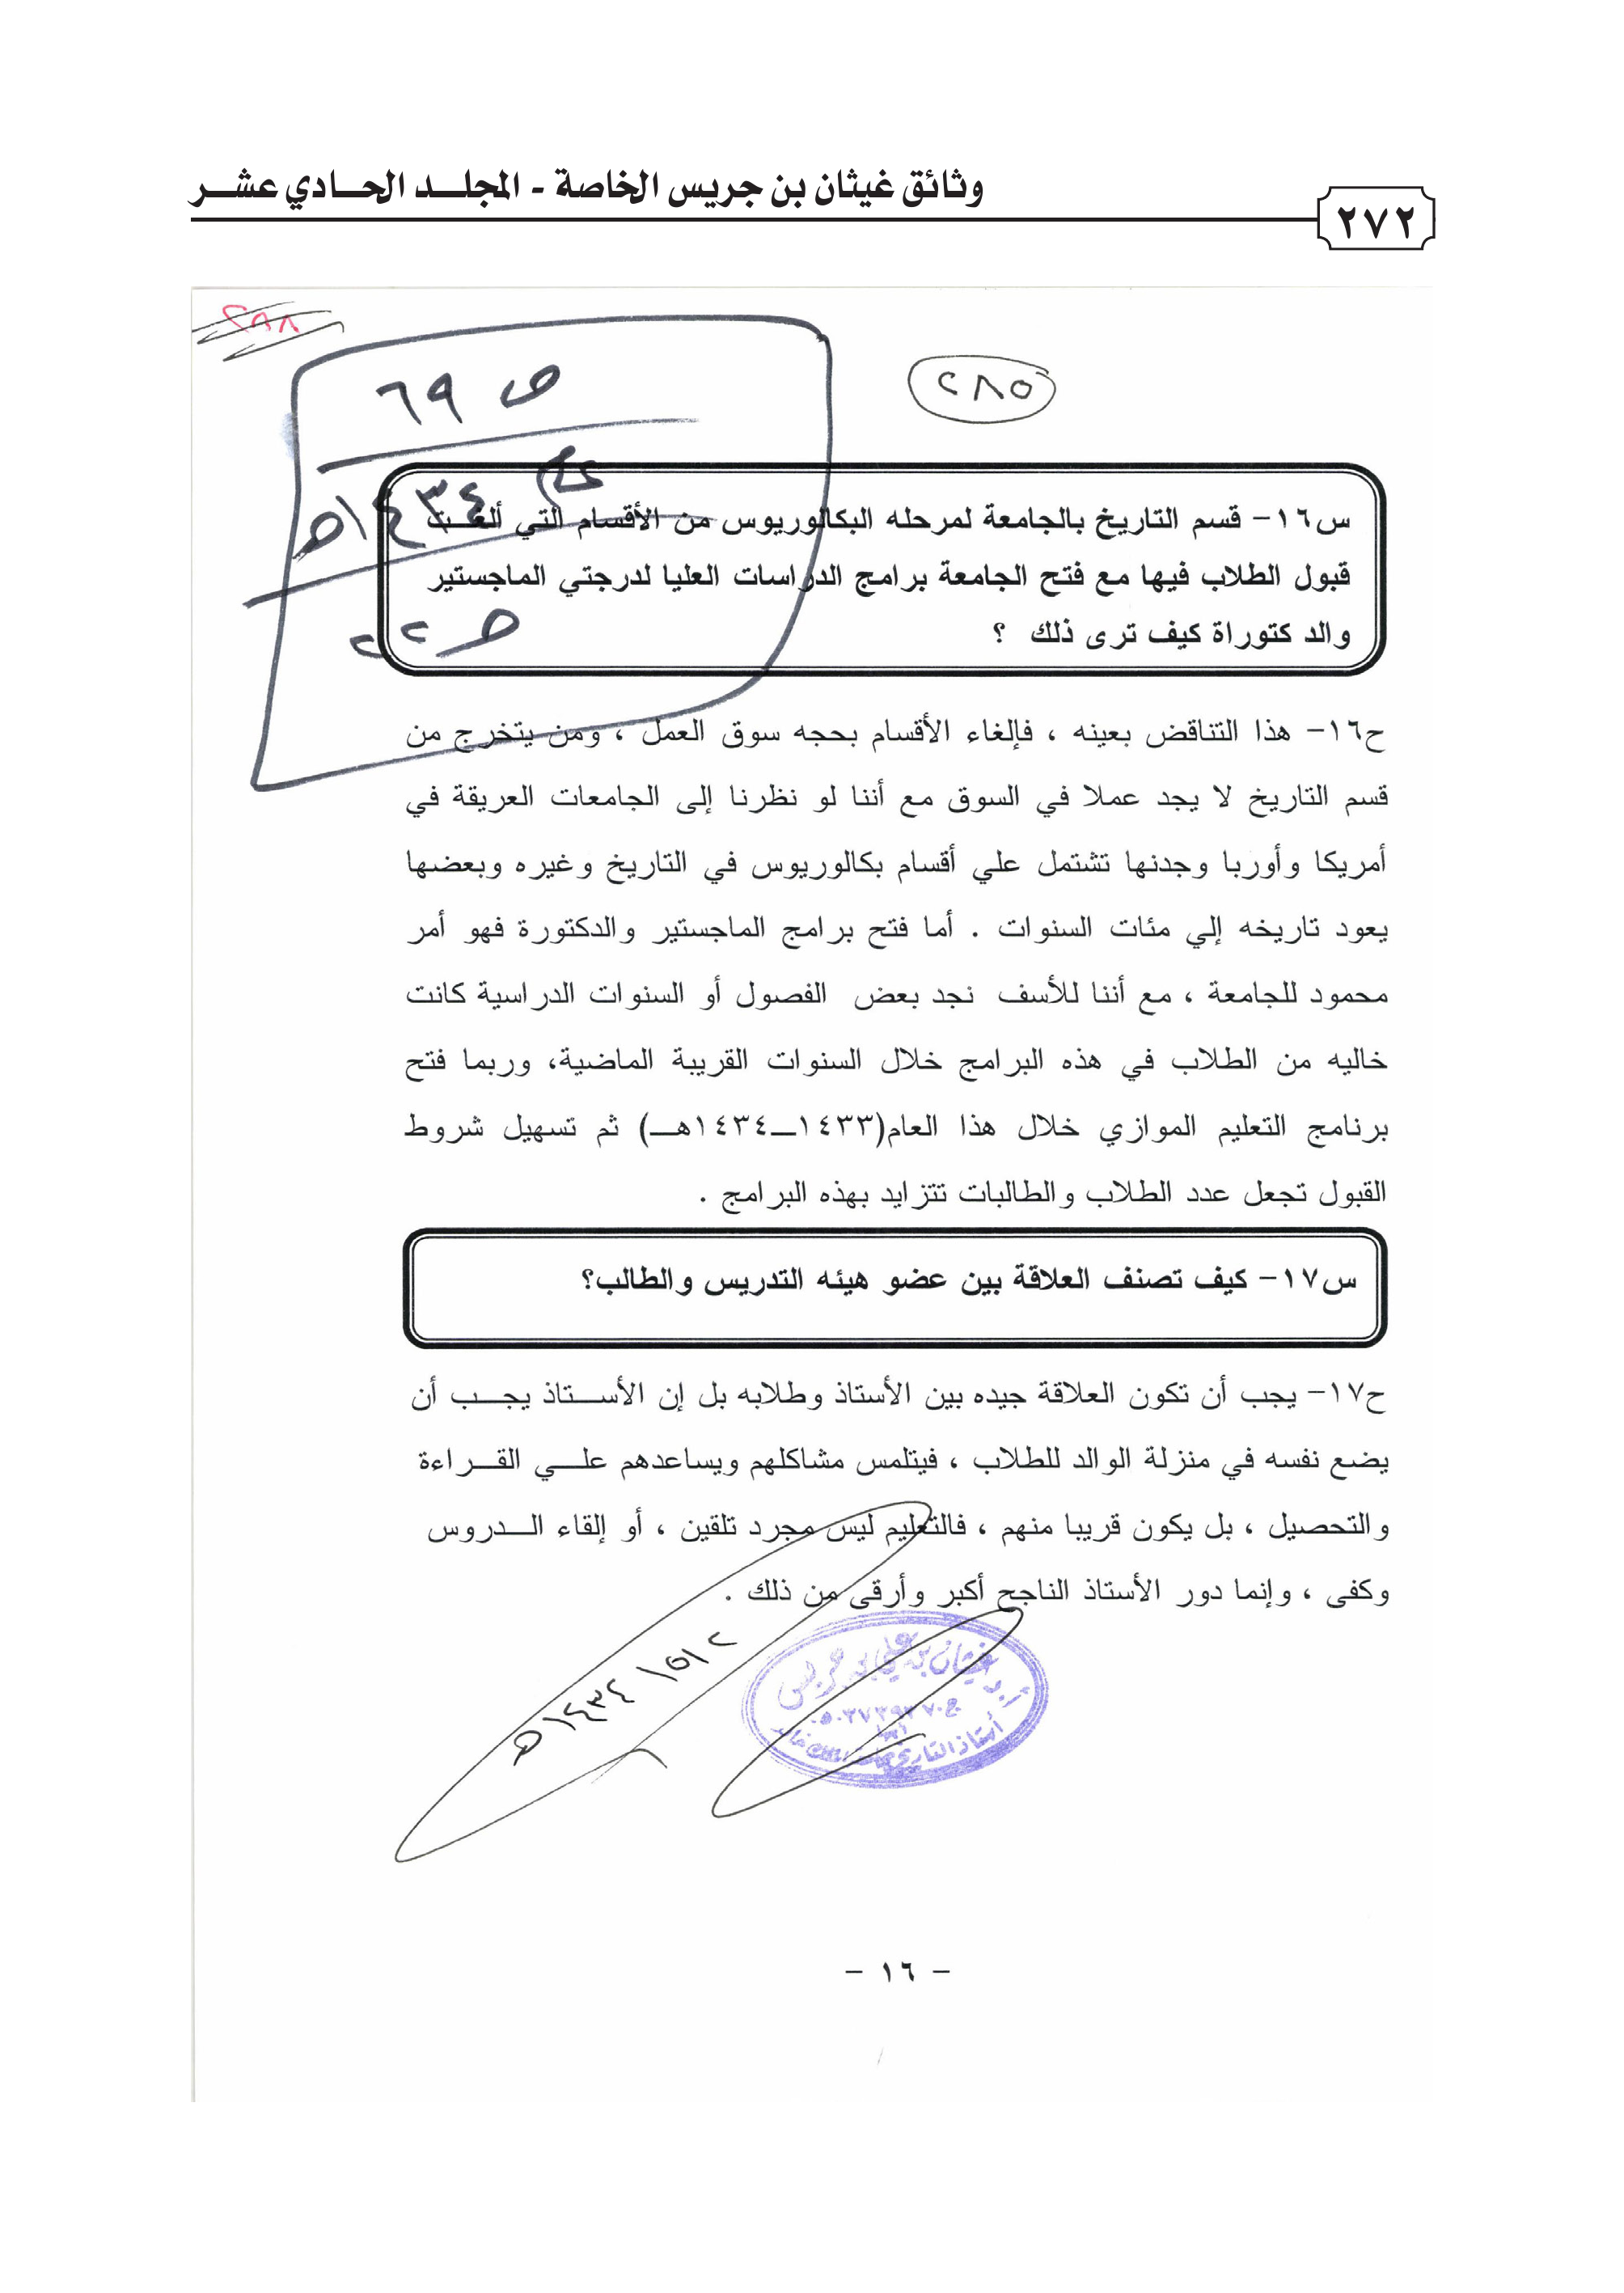 وثائق غيثان بن جريس الخاصة - المجلـــد الحـــادي عشـــر
٢٧٢
٢٨٨
ص ٦٩
٢٨٥
عام
١٤٣٤هـ
ص ٢٢
س١٦- قسم التاريخ بالجامعة لمرحله البكالوريوس من الأقسام التي ألغـــت
قبول الطلاب فيها مع فتح الجامعة برامج الدراسات العليا لدرجتي الماجستير
والد كتوراة كيف ترى ذلك ؟
ح١٦- هذا التناقض بعينه ، فإلغاء الأقسام بحجه سوق العمل ، ومن يتخرج من
قسم التاريخ لا يجد عملا في السوق مع أننا لو نظرنا إلى الجامعات العريقة في
أمريكا وأوربا وجدنها تشتمل علي أقسام بكالوريوس في التاريخ وغيره وبعضها
يعود تاريخه إلي مئات السنوات . أما فتح برامج الماجستير والدكتورة فهو أمر
محمود للجامعة ، مع أننا للأسف نجد بعض الفصول أو السنوات الدراسية كانت
خاليه من الطلاب في هذه البرامج خلال السنوات القريبة الماضية، وربما فتح
برنامج التعليم الموازي خلال هذا العام(١٤٣٣ــ١٤٣٤هــ) ثم تسهيل شروط
القبول تجعل عدد الطلاب والطالبات تتزايد بهذه البرامج .
س١٧- كيف تصنف العلاقة بين عضو هيئه التدريس والطالب؟
ح١٧- يجب أن تكون العلاقة جيده بين الأستاذ وطلابه بل إن الأســـتاذ يجـــب أن
يضع نفسه في منزلة الوالد للطلاب ، فيتلمس مشاكلهم ويساعدهم علـــي القـــراءة
والتحصيل ، بل يكون قريبا منهم ، فالتعليم ليس مجرد تلقين ، أو إلقاء الـــدروس
وكفى ، وإنما دور الأستاذ الناجح أكبر وأرقى من ذلك .
أ.د غيثان بن علي بن جريس
أستاذ التاريخ
٢/٥/١٤٣٤هـ
- ١٦ -